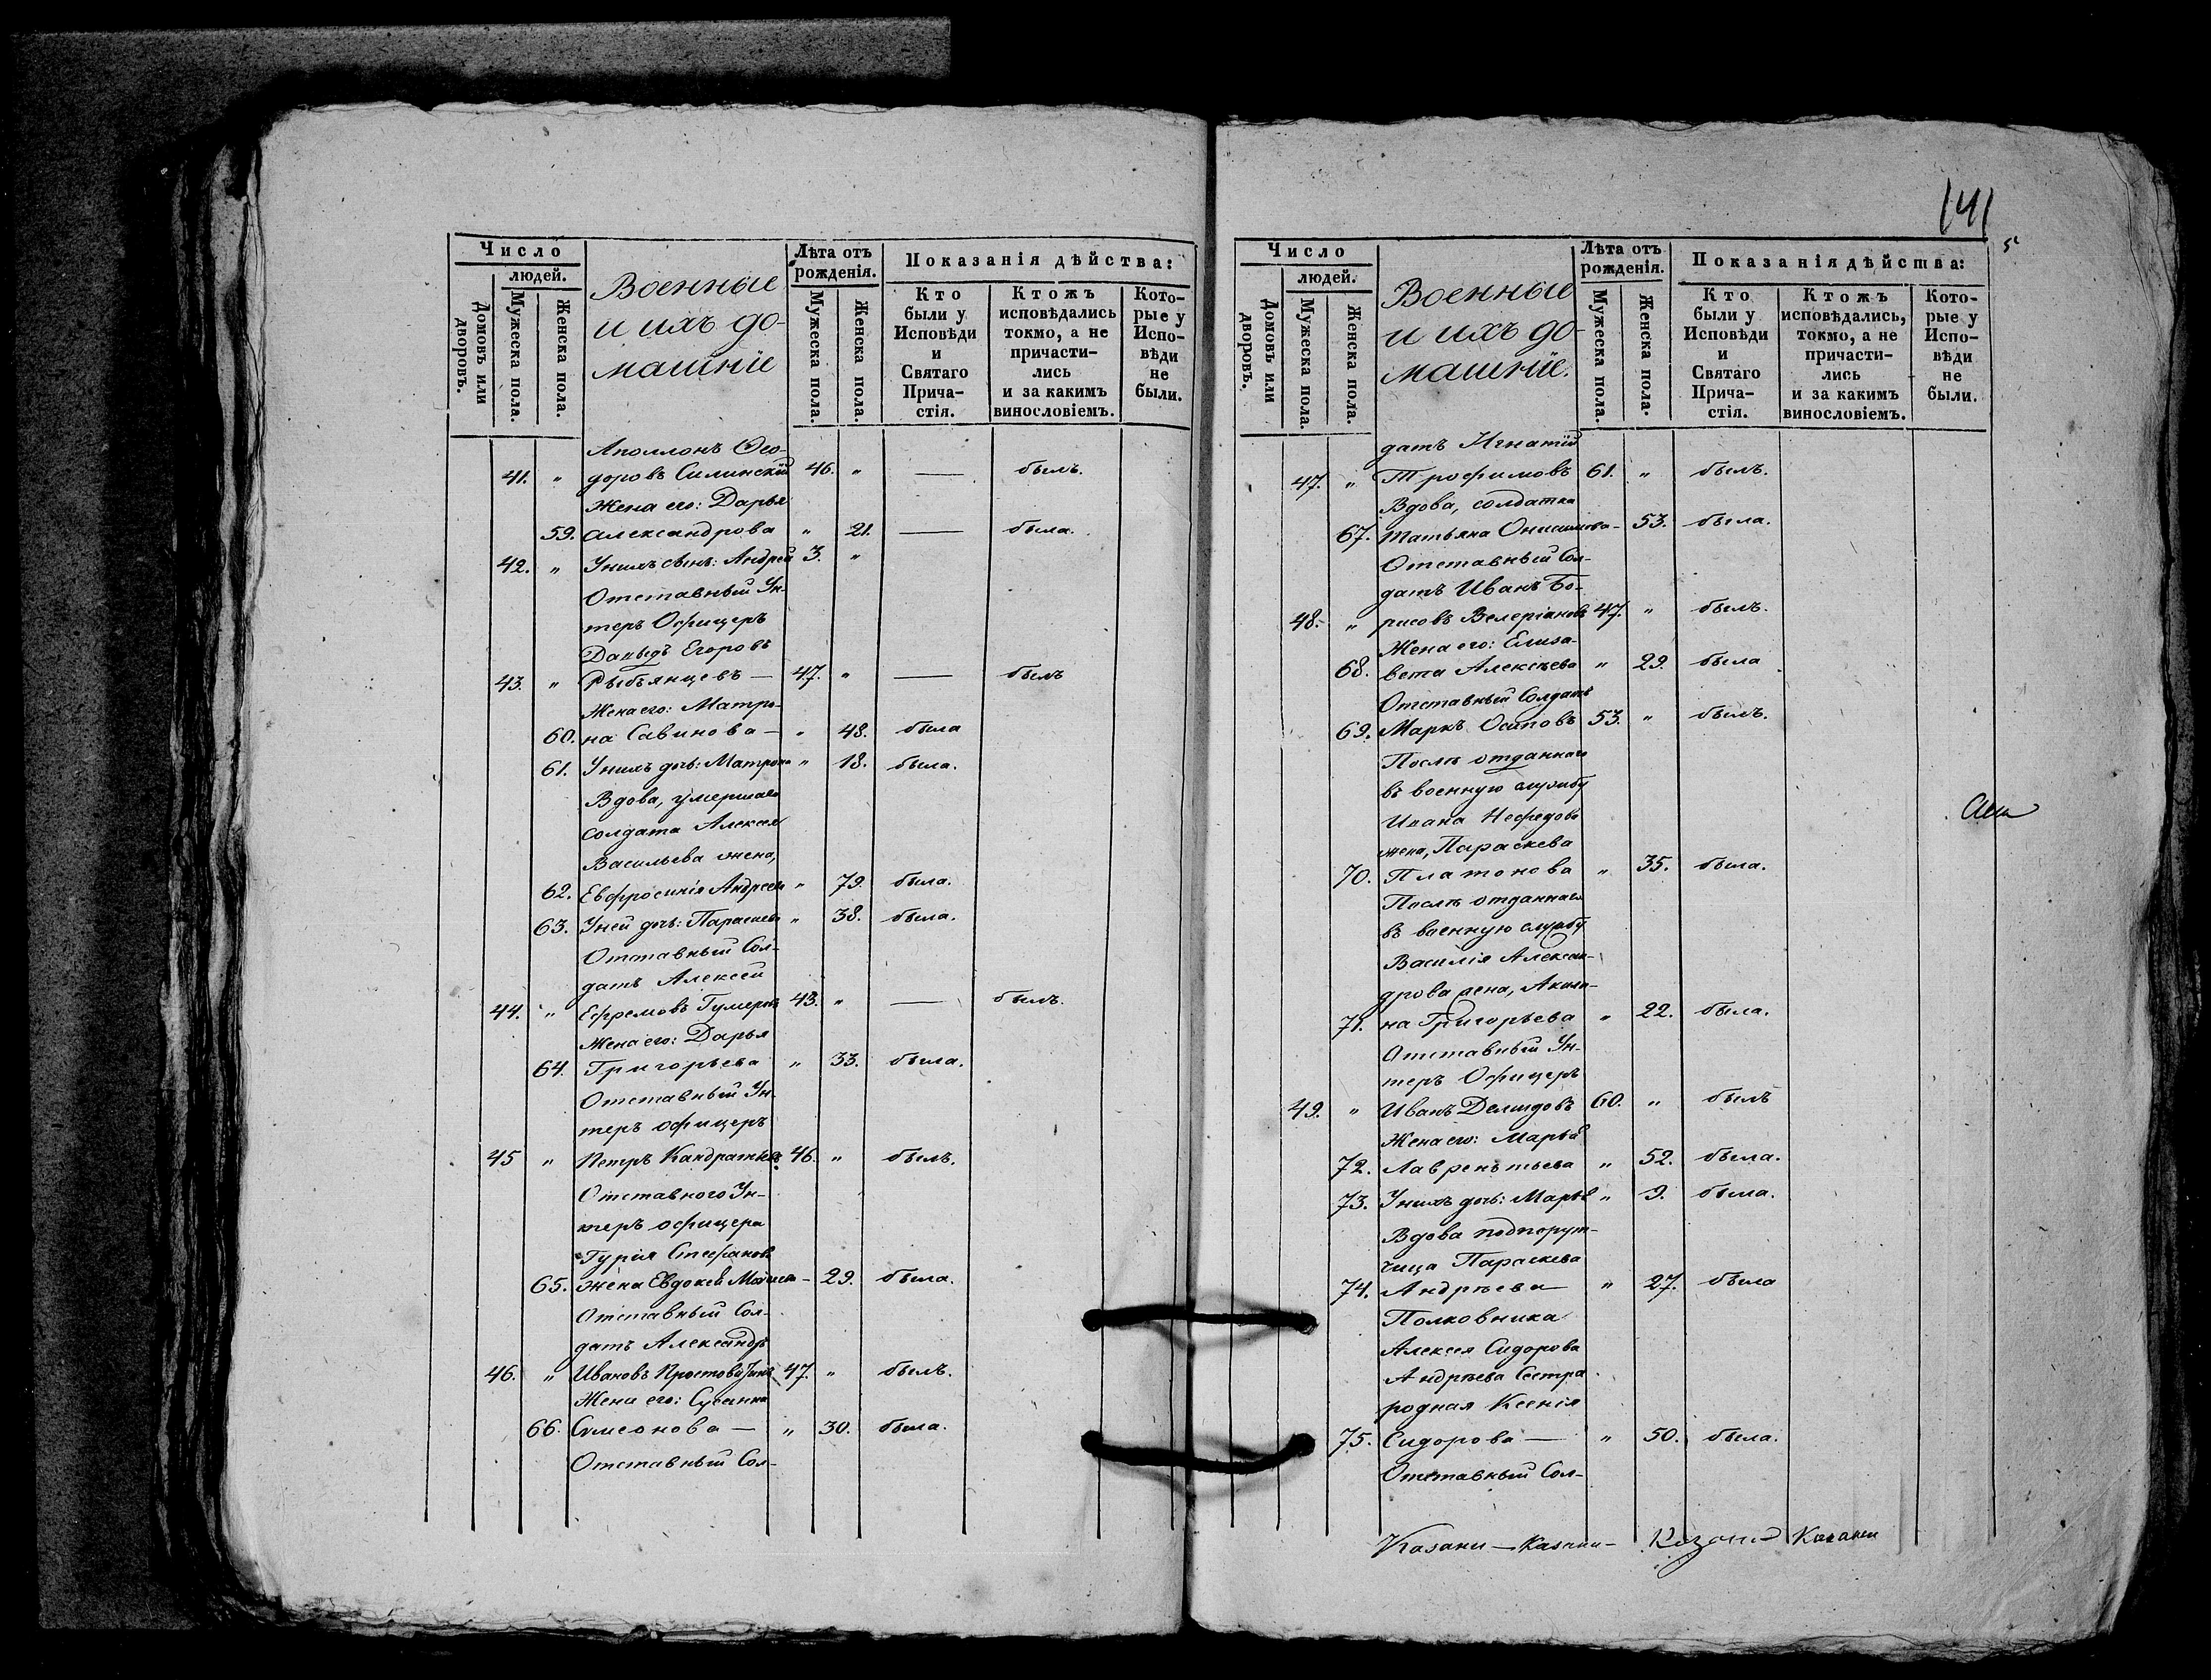 Число
людей.
Домовъ или дворовъ.
Мужеска пола.
Женска пола.
Военные
и ихъ до-
машніе
Лѣта отъ рожденія.
Мужеска пола.
Женска пола.
Показанія дѣйства:
Кто были у Исповѣди и Святаго Прича-стія.
Ктожъ исповѣдались токмо, а не причасти-лись и за какимъ винословіемъ.
Кото-рые у Испо-вѣди не были.
Аполлонъ Ѳео-
41. " доровъ Силинскій 46. " — былъ.
Жена его: Дарья
59. Александрова " 21. — была.
42. " У нихъ сынъ: Андрей 3. "
Отставный Ун-
теръ Офицеръ
Давыдъ Егоровъ
43. " Рыбъянцевъ — 47. " — былъ
Жена его: Матро-
60. на Савинова — " 48. была
61. У нихъ дочь: Матрона " 18. была.
Вдова, умершаго
солдата Алексея
Васильева жена,
62. Евфросинія Андреева " 79. была.
63. У ней дочь: Параскева " 38. была.
Отставный Сол-
датъ Алексей
44. " Ефремовъ Гумеровъ 43. " — былъ.
Жена его: Дарья
64. Григорьева " 33. была.
Отставный Ун-
теръ офицеръ
45 " Петръ Кандратьевъ 46. " былъ.
Отставного Ун-
теръ офицера
Гурія Стефанова
65. жена Евдокея - 29. была.
Отставный Сол-
датъ Александръ
46. " Ивановъ 47. " былъ.
Жена его: Сусанна
66. Симеонова — " 30. была.
Отставный Сол-
141
5
Число
людей.
Домовъ или дворовъ.
Мужеска пола.
Женска пола.
Военные
и ихъ до-
машніе.
Лѣта отъ рожденія.
Мужеска пола.
Женска пола.
Показанія дѣйства:
Кто были у Исповѣди и Святаго Прича-стія.
Ктожъ исповѣдались, токмо, а не причасти-лись и за какимъ винословіемъ.
Кото-рые у Испо-вѣди не были.
датъ Игнатій
47. " Трофимовъ 61. " былъ.
Вдова, солдатка
67. Татьяна Онисимова - 53. была.
Отставный Сол-
датъ Иванъ Бо-
48. " рисовъ Велеріановъ 47. " былъ.
Жена его: Елиза-
68. вета Алексѣева " 29. была
Отставный Солдатъ
69. Маркъ Осиповъ 53. " былъ.
Послѣ отданнаго
въ военную службу
Ивана Нефедова
жена, Параскева
70. Платонова " 35. была.
Послѣ отданнаго
въ военную службу
Василія Алексан-
дрова жена, Акили-
71. на Григорьева " 22. была.
Отставный Ун-
теръ Офицеръ
49. " Иванъ Демидовъ 60. " былъ
Жена его: Марья
72. Лаврентьева " 52. была.
73. У нихъ дочь: Марья " 9. была.
Вдова подпоруч-
чица Параскева
74. Андрѣева — " 27. была
Полковника
Алексея Сидорова
Андрѣева Сестра
родная Ксенія
75. Сидорова — " 50. была.
Отставный Сол-
Казани — Казани — Казани Казани